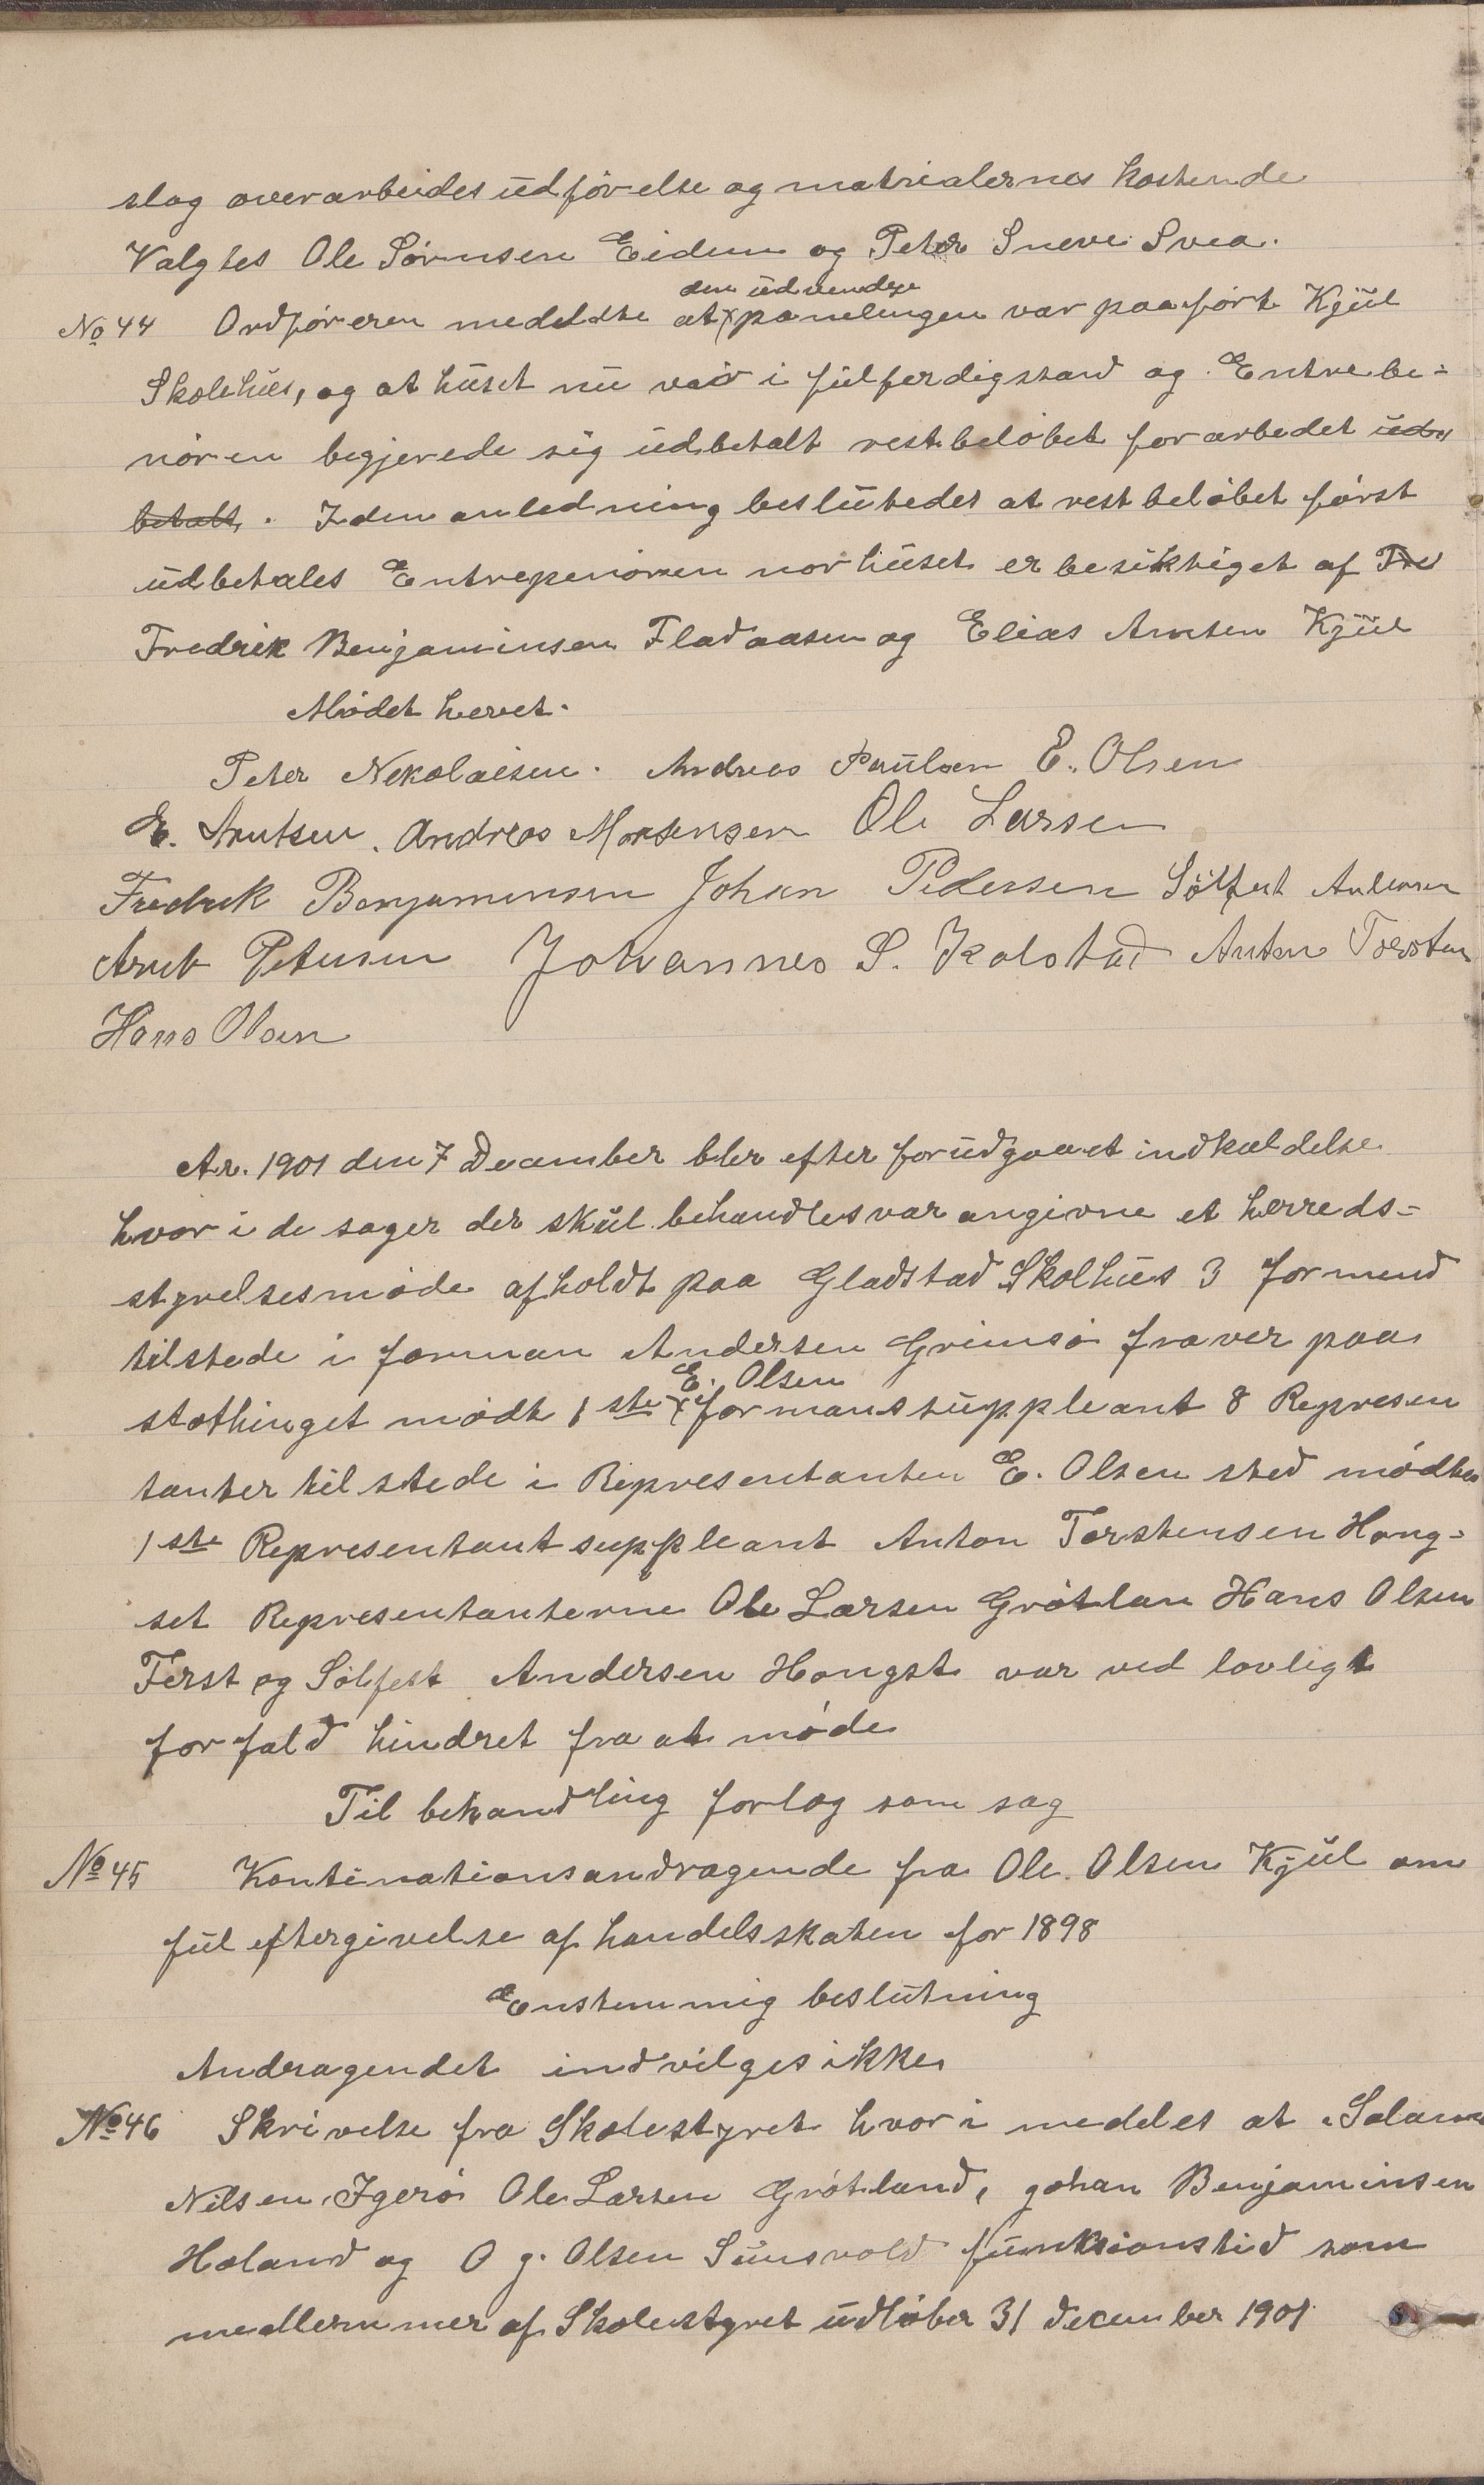 slag over arbeides udførelse og matrialernes kostende
Valgtes Ole Sørensen Eidem og Peter Sneve Svea.
den udvendige
No 44 Ordføreren meddelte at panelingen var paaført Kjul
Skolehus, og at huset nu var i fulferdigstand og Entrebe-
nøren begjerede sig udbetalt restbeløbet for arbedet ud-
betalt. I den anledning beslutedes at restbeløbet først
udbetales Entrepenøren nor huset er besiktiget af Fre
Fredrik Benjaminsen Fladaasen og Elias Arntsen Kjul
Mødet hevet.
Peter Nekolaisen. Andreas Paulsen E. Olsen
E. Arntsen. Andreas Mortensen Ole Larsen
Fredrik Benjaminsen Johan Pedersen Sølfest Andersen
Arnt Petersen Johannes S. Kolstad Anton Torsten
Hans Olsen
Ar. 1901 den 7 December blev efter forudgaaet indkaldelse
hvor i de sager der skul behandles var angivne et herreds-
styrelsesmøde afholdt paa Gladstad Skolhus 3 formend
tilstede i forman Andersen Grimsø fraver paa
E. Olsen
stathinget mødte 1ste formanssuppleant 8 Represen
tanter tilstede i Representanten E. Olsen sted mødte
1ste Representantsuppleant Anton Torstensen Hong-
set Representanterne Ole Larsen Grøtlan Hans Olsen
Ferst og Sølfest Andersen Hongst var ved lovligt
forfald hindret fra at møde
Til behandling forlog som sag
No 45 Kontinationsandragende fra Ole Olsen Kjul om
ful eftergivelse af handelsskaten for 1898
Enstemmig beslutning
Andragendet indvilges ikke
No 46 Skrivelse fra Skolestyret hvori meddeles at
Nilsen Igerø Ole Larsen Grøtland, johan Benjaminsen
Holand og O g. Olsen Sunsvold funksionstid som
medlemmer af Skolestyret udløber 31 december 1901